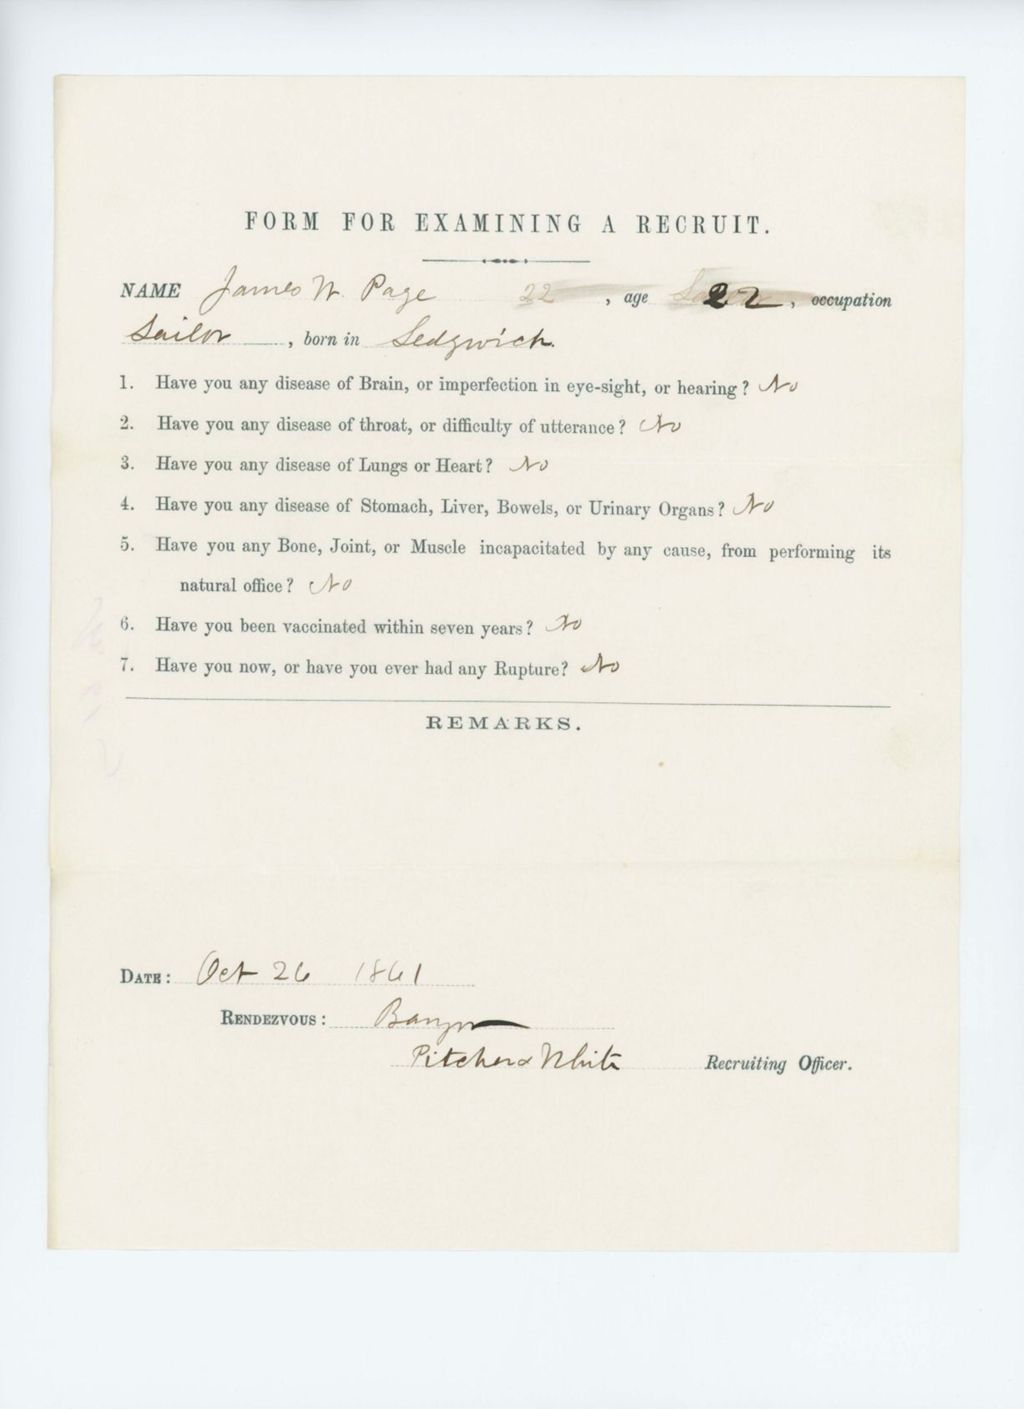 FORM FOR EXAMINING A RECRUIT.
NAME James W. Page 22, age 22, occupation
Sailor, born in Sedgwick.
1. Have you any disease of Brain, or imperfection in eye-sight, or hearing? No
2. Have you any disease of throat, or difficulty of utterance? No
3. Have you any disease of Lungs or Heart? No
4. Have you any disease of Stomach, Liver, Bowels, or Urinary Organs? No
5. Have you any Bone, Joint, or Muscle incapacitated by any cause, from performing its
natural office? No
6. Have you been vaccinated within seven years? No
7. Have you now, or have you ever had any Rupture? No
REMARKS.
DATE: Oct 26 1861
RENDEZVOUS: Bangor
Pitcher & White Recruiting Officer.